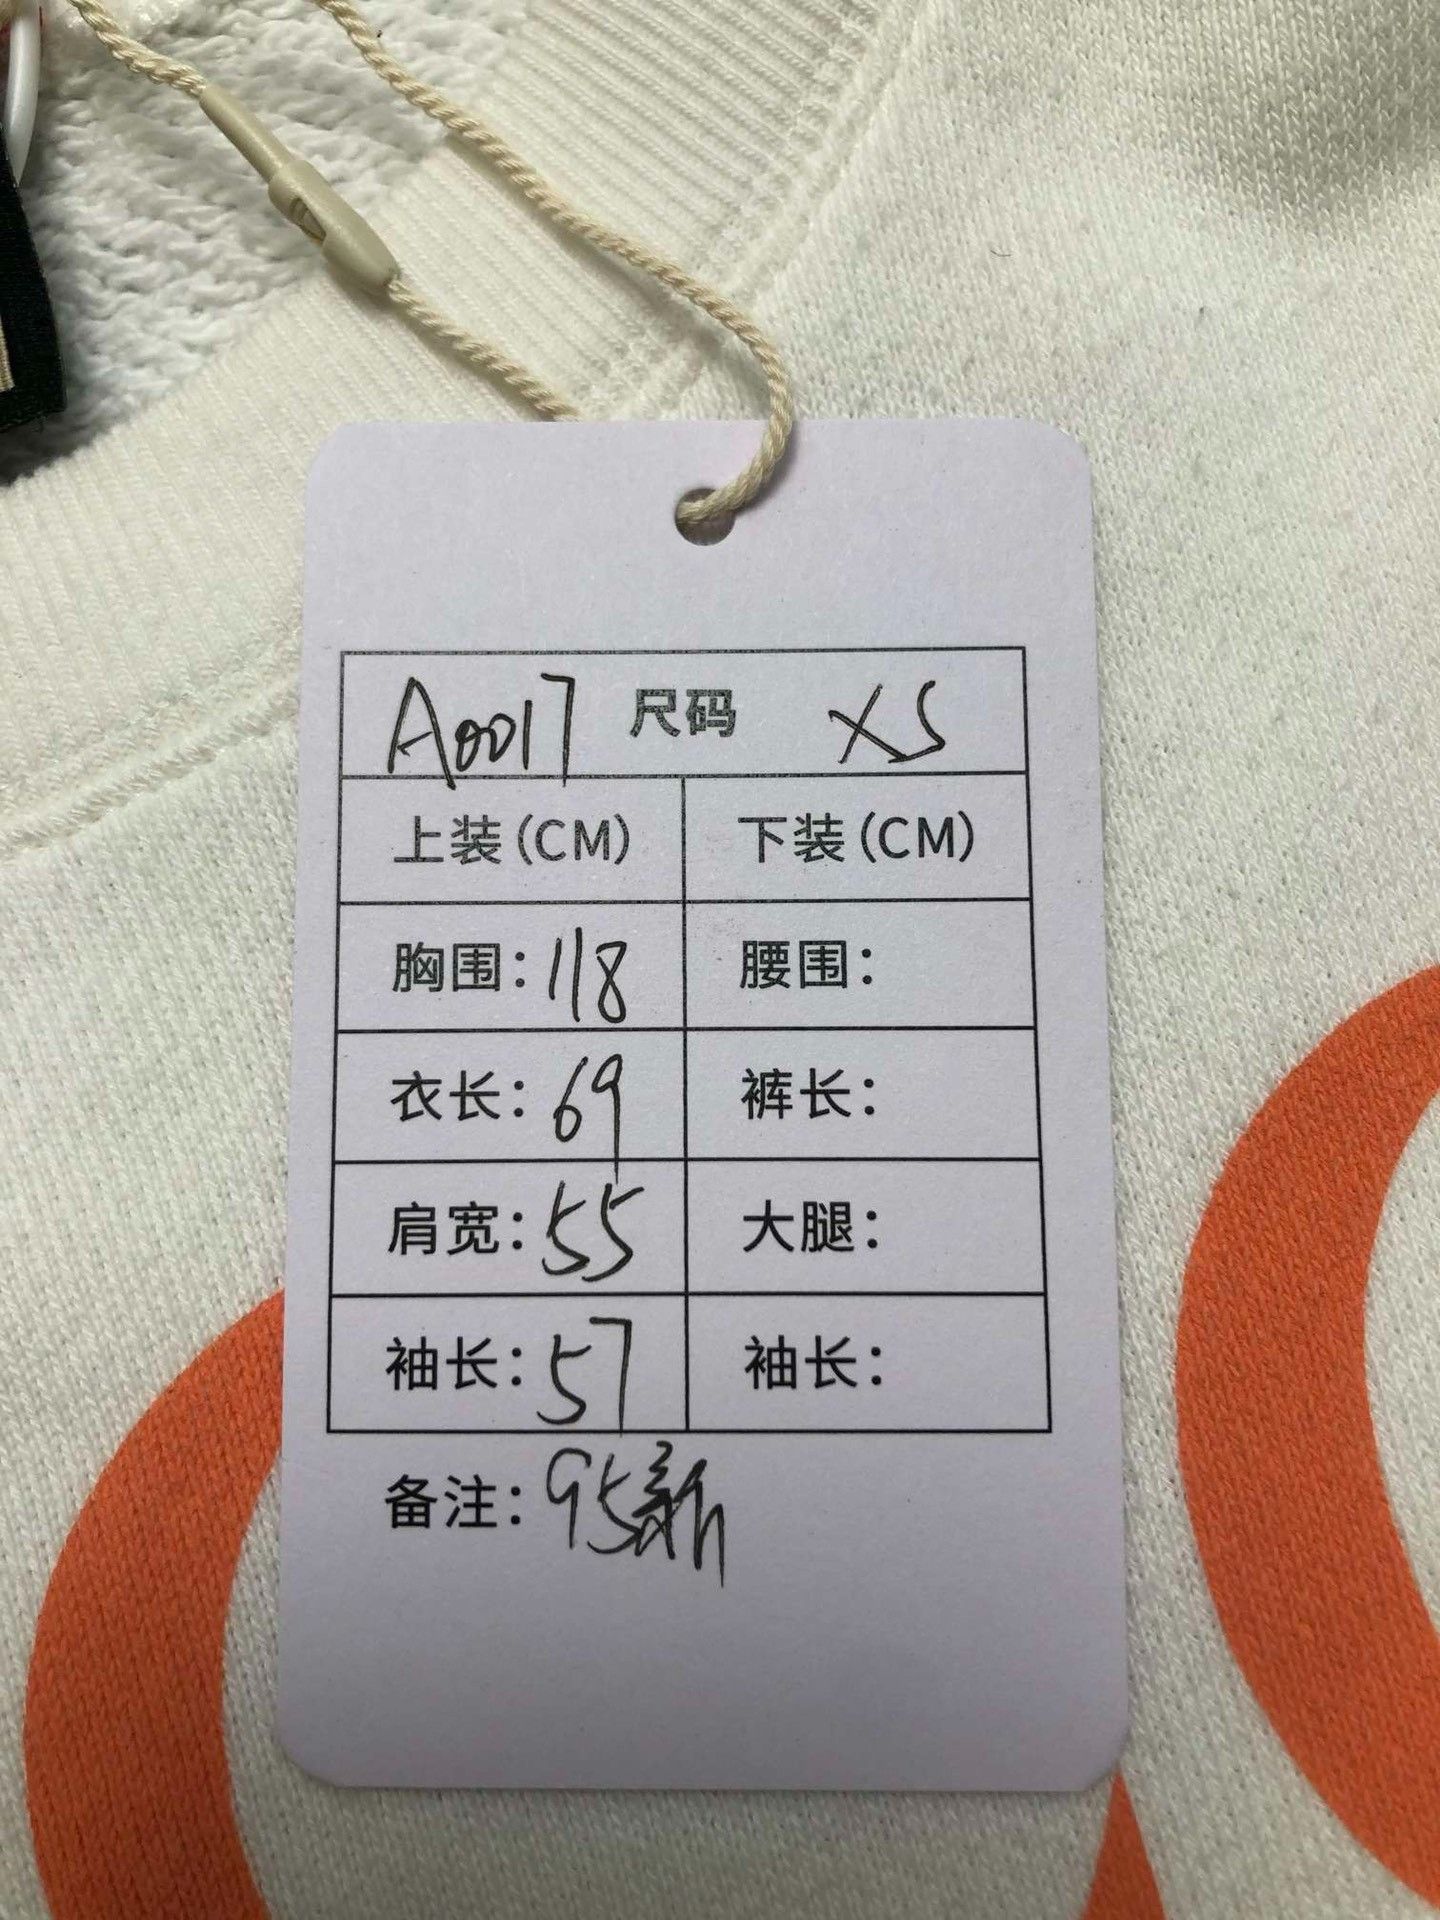 A0017 尺码 XS
上装(CM) 下装(CM)
胸围：118 腰围：
衣长：69 裤长：
肩宽：55 大腿：
袖长：57 袖长：
备注：95新